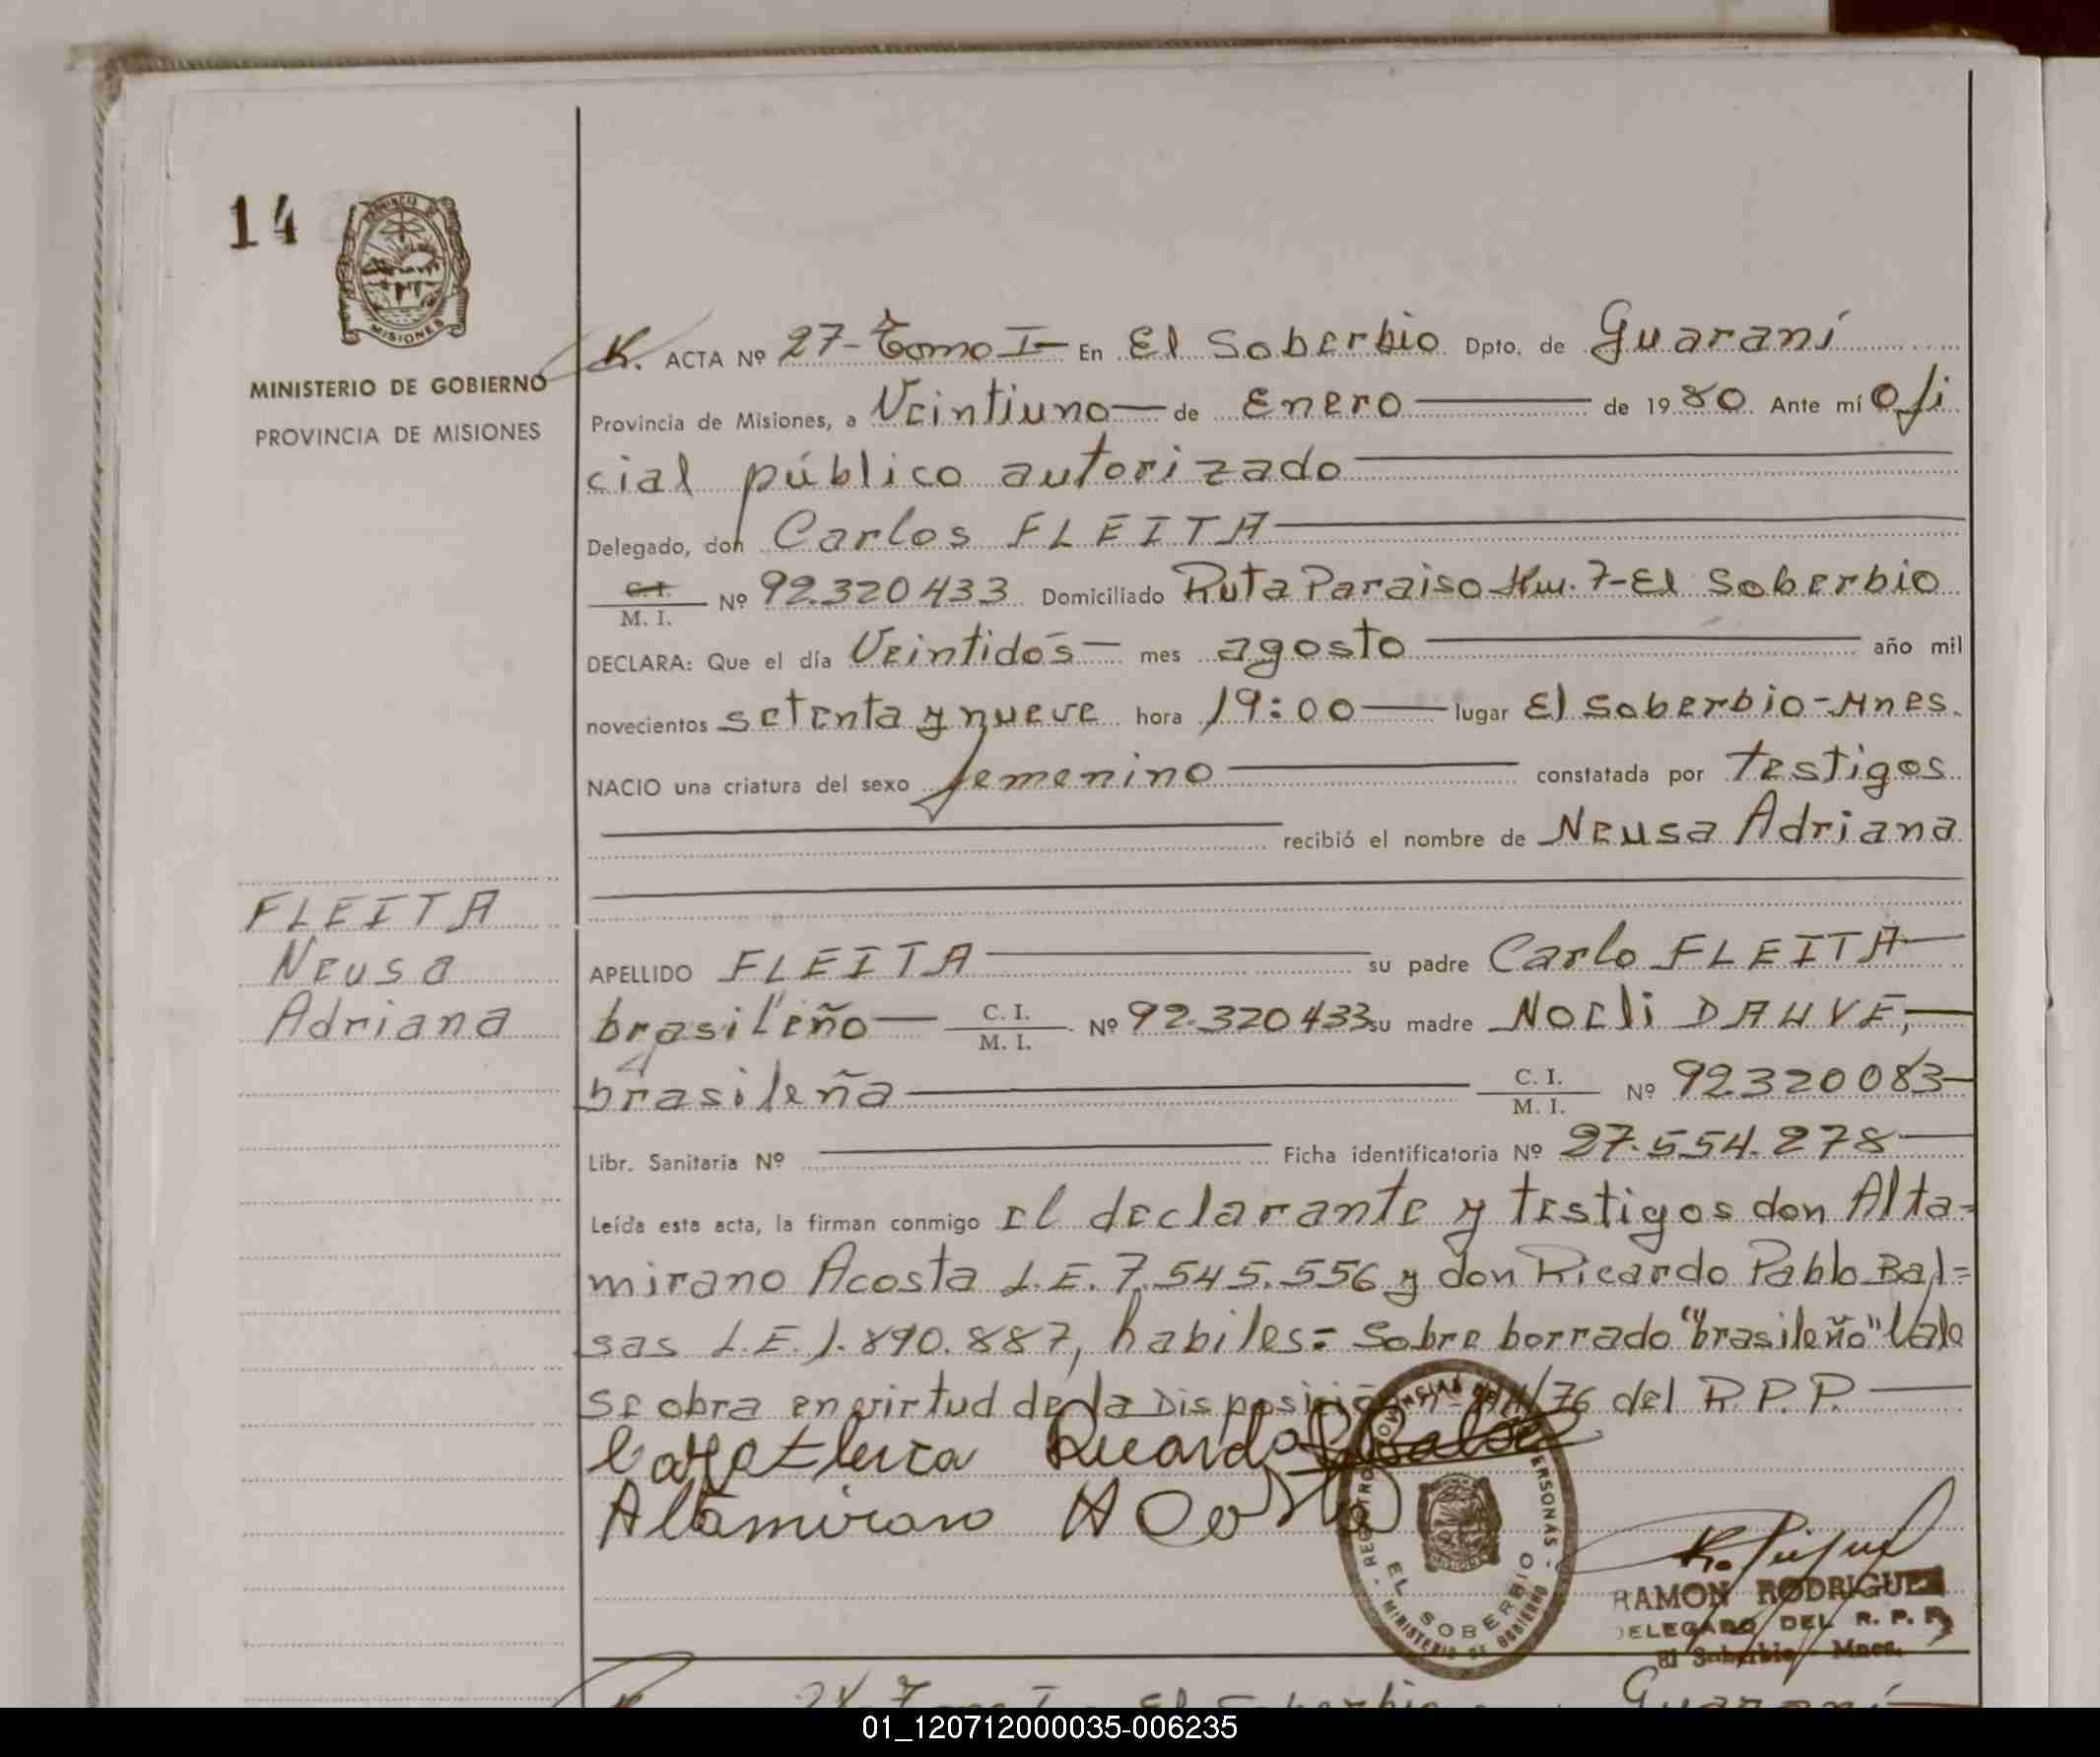 14
MISIONES
MINISTERIO DE GOBIERNO
PROVINCIA DE MISIONES
K. ACTA Nº 27-Tomo I- En El Soberbio Dpto. de Guaraní
Provincia de Misiones, a Veintiuno de Enero de 1980. Ante mí Ofi
cial público autorizado
Delegado, don Carlos FLEITA
C.I. / M. I. Nº 92.320433 Domiciliado Ruta Paraiso Km. 7-El Soberbio
DECLARA: Que el día Veintidós mes agosto año mil
novecientos setenta y nueve hora 19:00 lugar El Soberbio-Mnes.
NACIO una criatura del sexo femenino constatada por testigos
recibió el nombre de Neusa Adriana
FLEITA
Neusa
Adriana
APELLIDO FLEITA su padre Carlo FLEITA
brasileño C. I. / M. I. Nº 92.320433 su madre Nocli DAHVE,
brasileña C. I. / M. I. Nº 92320083
Libr. Sanitaria Nº Ficha identificatoria Nº 27.554.278
Leída esta acta, la firman conmigo el declarante y testigos don Alta=
mirano Acosta L.E. 7.545.556 y don Ricardo Pablo Bal=
sas L.E. 1.890.887, habiles= Sobre borrado "brasileño" Vale
Se obra en virtud de la Disposición /76 del R.P.P.
Ricardo
Altamirano Acosta
EL SOBERBIO
MINISTERIO DE GOBIERNO
RAMON RODRIGUEZ
DELEGADO DEL R. P. P.
El Soberbio Mnes.
Tomo I El Soberbio Guaraní
01_120712000035-006235